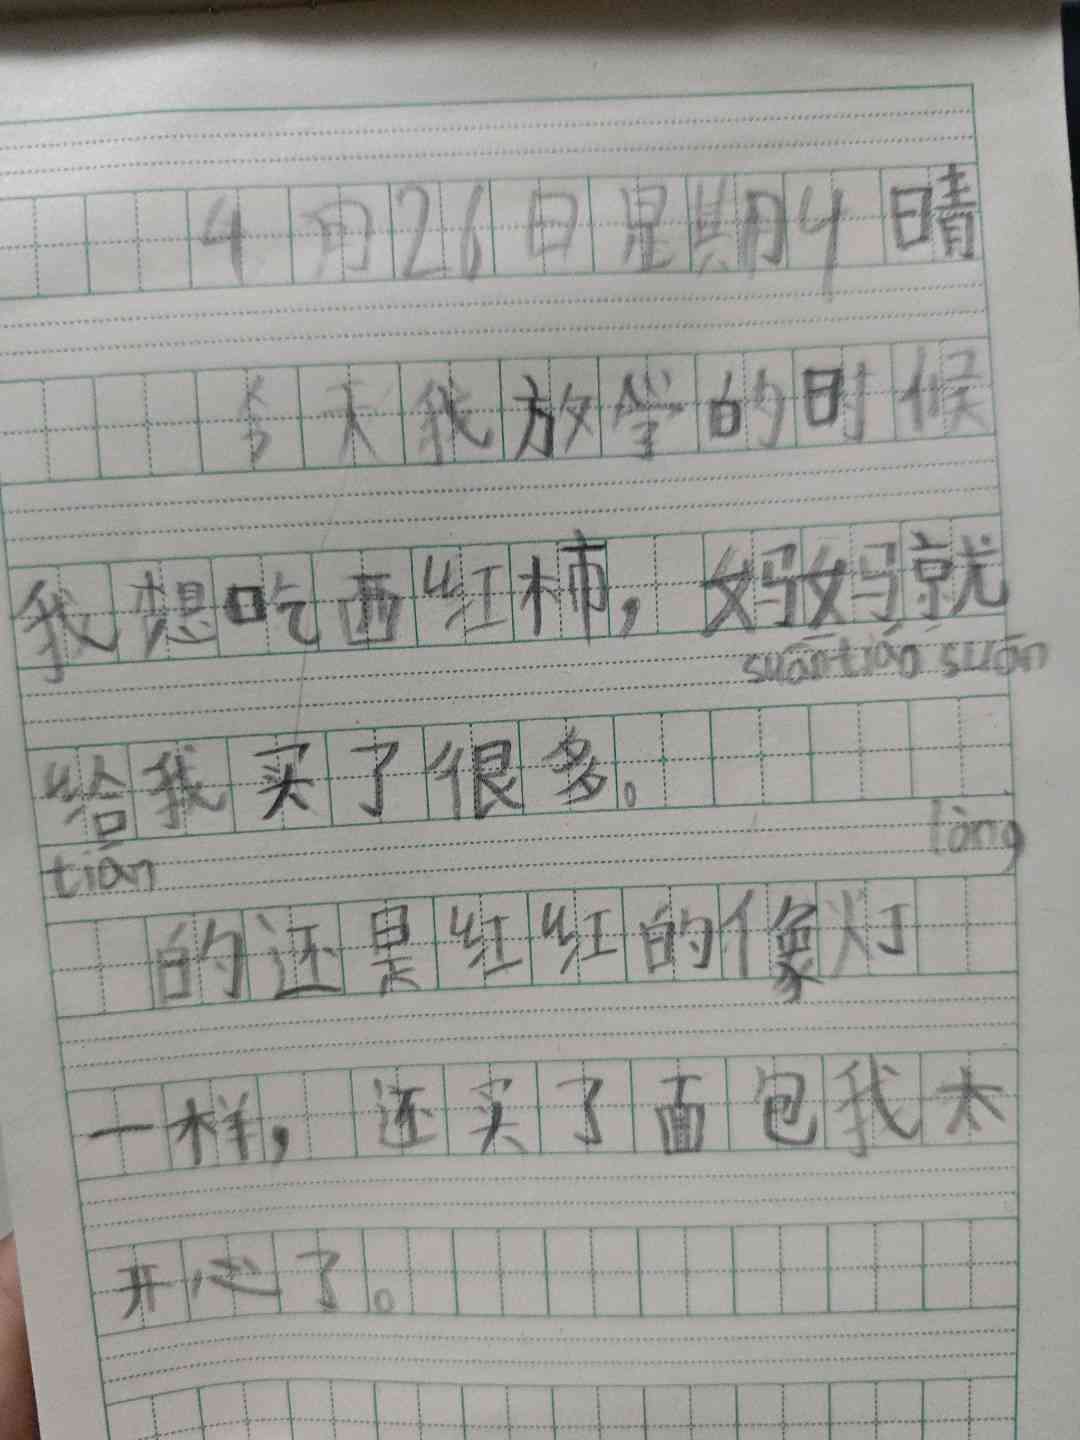 4月26日星期4晴
今天我放学的时候
我想吃西红柿，妈妈就
给我买了很多。suāntián suān
tián的还是红红的像灯lóng
一样，还买了面包我太
开心了。